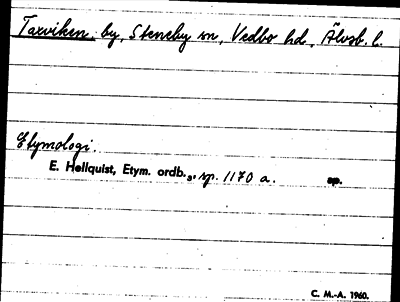 Taxviken. by, Steneby sn, Vedbo hd, Älvsb. l.
Etymologi.
E. Hellquist, Etym. ordb., sp. 1170 a. sp.
C. M.-A. 1960.